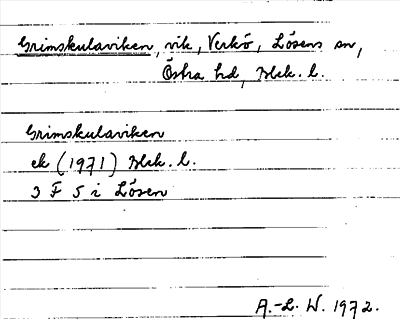 Grimskulaviken, vik, Verkö, Lösens sn,
Östra hd, Blek. l.
Grimskulaviken
ek (1971) Blek. l.
3 F 5 i Lösen
A.-L. W. 1972.